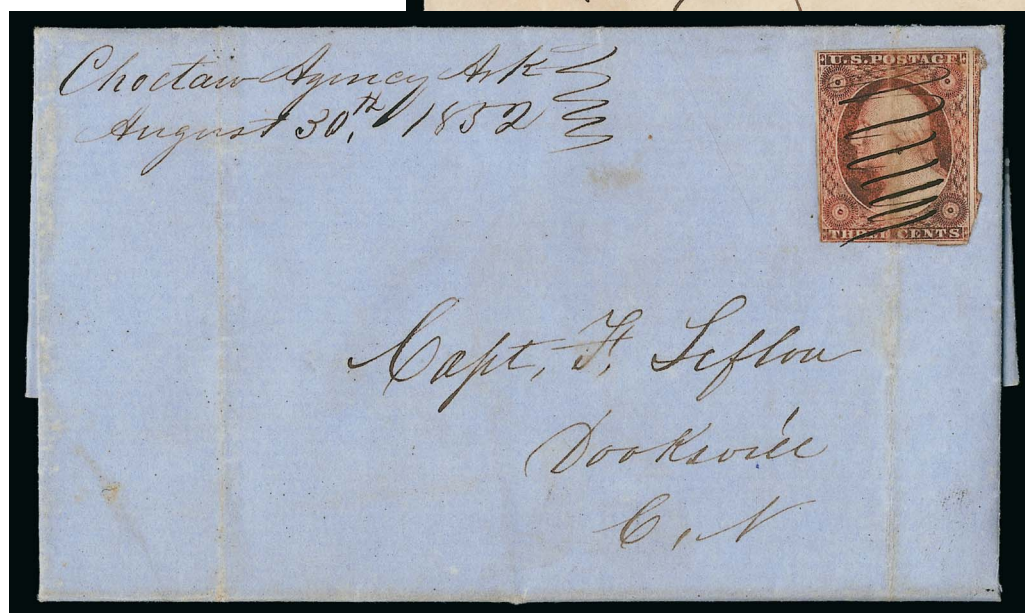 Choctaw Agency Ark
August 30th, 1852
U.S. POSTAGE
THREE CENTS
Capt, F, Leflou
Dooksville
C, N